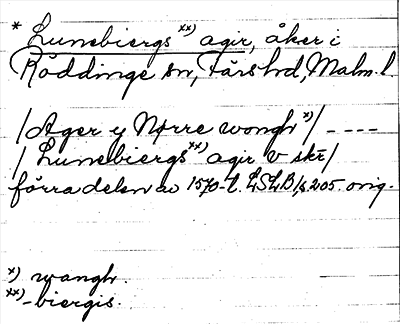 * Lunebiergs xx) agir, åker i
Röddinge sn, Färs hd, Malm. l.
/Ager y Nørre wongh x)/ ----
/ Lunebiergs xx) agir v skr/
förra delen av 1570-t. LSLB/s 205. orig.
x) wangh.
xx) -biergis.